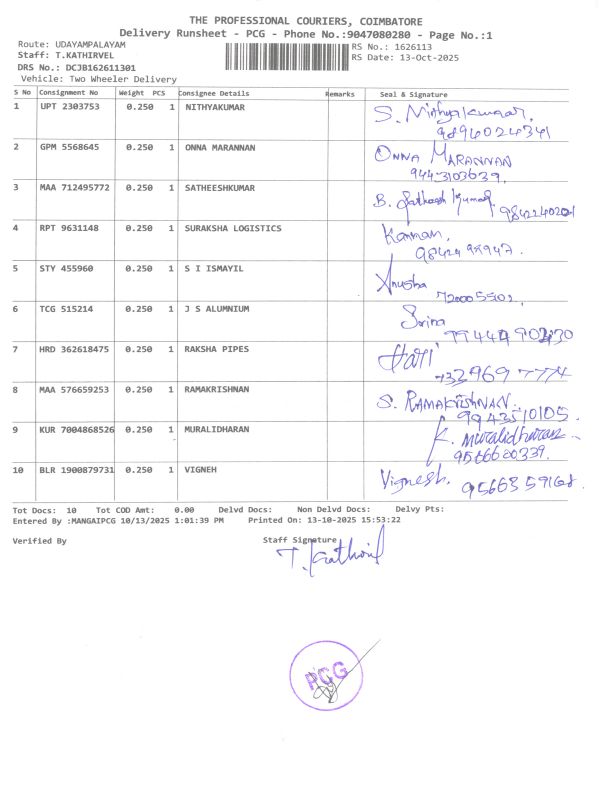 THE PROFESSIONAL COURIERS, COIMBATORE
Delivery Runsheet - PCG - Phone No.:9047080280 - Page No.:1
Route: UDAYAMPALAYAM RS No.: 1626113
Staff: T.KATHIRVEL RS Date: 13-Oct-2025
DRS No.: DCJB162611301
Vehicle: Two Wheeler Delivery
S No Consignment No Weight PCS Consignee Details Remarks Seal & Signature
1 UPT 2303753 0.250 1 NITHYAKUMAR S. Nithyakumaar,
9894024341
2 GPM 5568645 0.250 1 ONNA MARANNAN ONNA MARANNAN
9443103639.
3 MAA 712495772 0.250 1 SATHEESHKUMAR B. Satheesh Kumar
4 RPT 9631148 0.250 1 SURAKSHA LOGISTICS Kannan,
5 STY 455960 0.250 1 S I ISMAYIL Anusha
6 TCG 515214 0.250 1 J S ALUMNIUM
7 HRD 362618475 0.250 1 RAKSHA PIPES Hari
8 MAA 576659253 0.250 1 RAMAKRISHNAN S. RAMAKRISHNAN.
9943510105.
9 KUR 7004868526 0.250 1 MURALIDHARAN K. Muralidharan
10 BLR 1900879731 0.250 1 VIGNEH Vignesh.
9566359168.
Tot Docs: 10 Tot COD Amt: 0.00 Delvd Docs: Non Delvd Docs: Delvy Pts:
Entered By :MANGAIPCG 10/13/2025 1:01:39 PM Printed On: 13-10-2025 15:53:22
Verified By Staff Signature
PCG